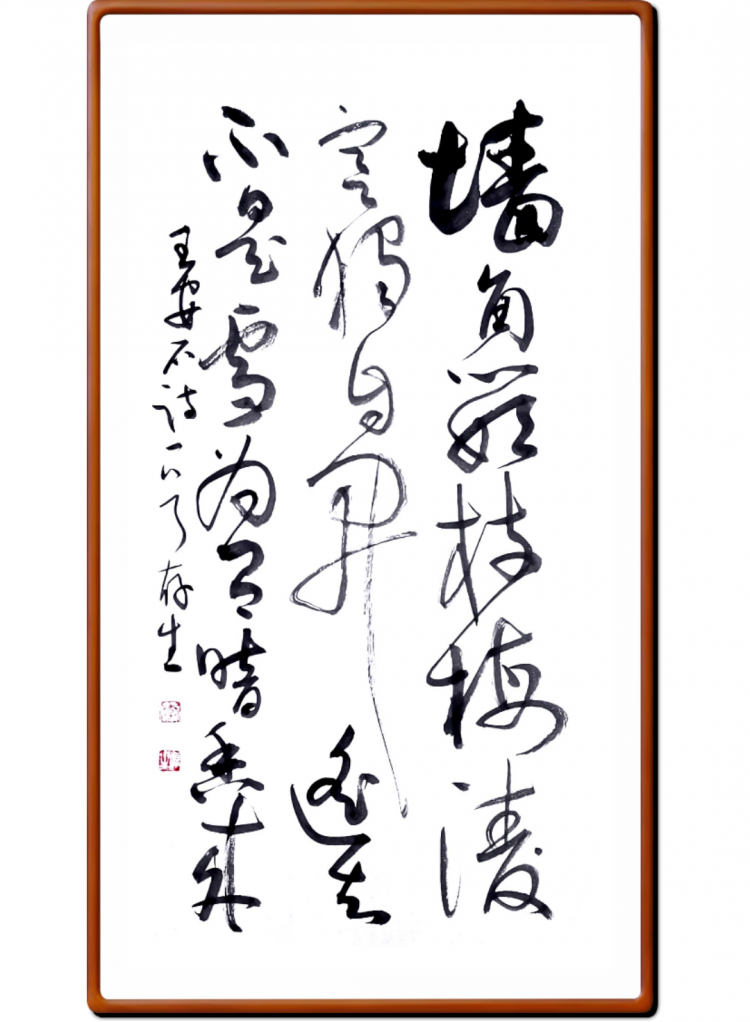 墙角数枝梅凌
寒独自开遥知
不是雪为有暗香来
王安石诗 存生